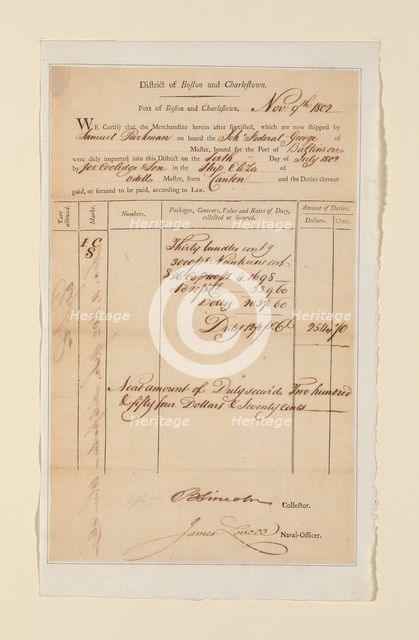 District of Boston and Charlestown.
Port of Boston and Charlestown, Nov 9th 1802
WE Certify that the Merchandize herein after specified, which are now shipped by
Samuel Parkman on board the Sch Federal George of
Master, bound for the Port of Baltimore
were duly imported into this District on the Sixth Day of July 1802
by Jos. Coolidge & Son in the Ship Eliza of
Master, from Canton and the Duties thereon
paid, or secured to be paid, according to Law.
Tare allowed. Marks. Numbers. Packages, Contents, Value and Rates of Duty, collected or secured. Amount of Duties.
Dollars. Cents.
Thirty bundles contg
3000 ps Nankeens cost
Duty 254 70
Neat amount of Duty secur'd Two hundred
& fifty four Dollars & Seventy cents
B Lincoln Collector.
James Lovell Naval-Officer.
Heritage Images